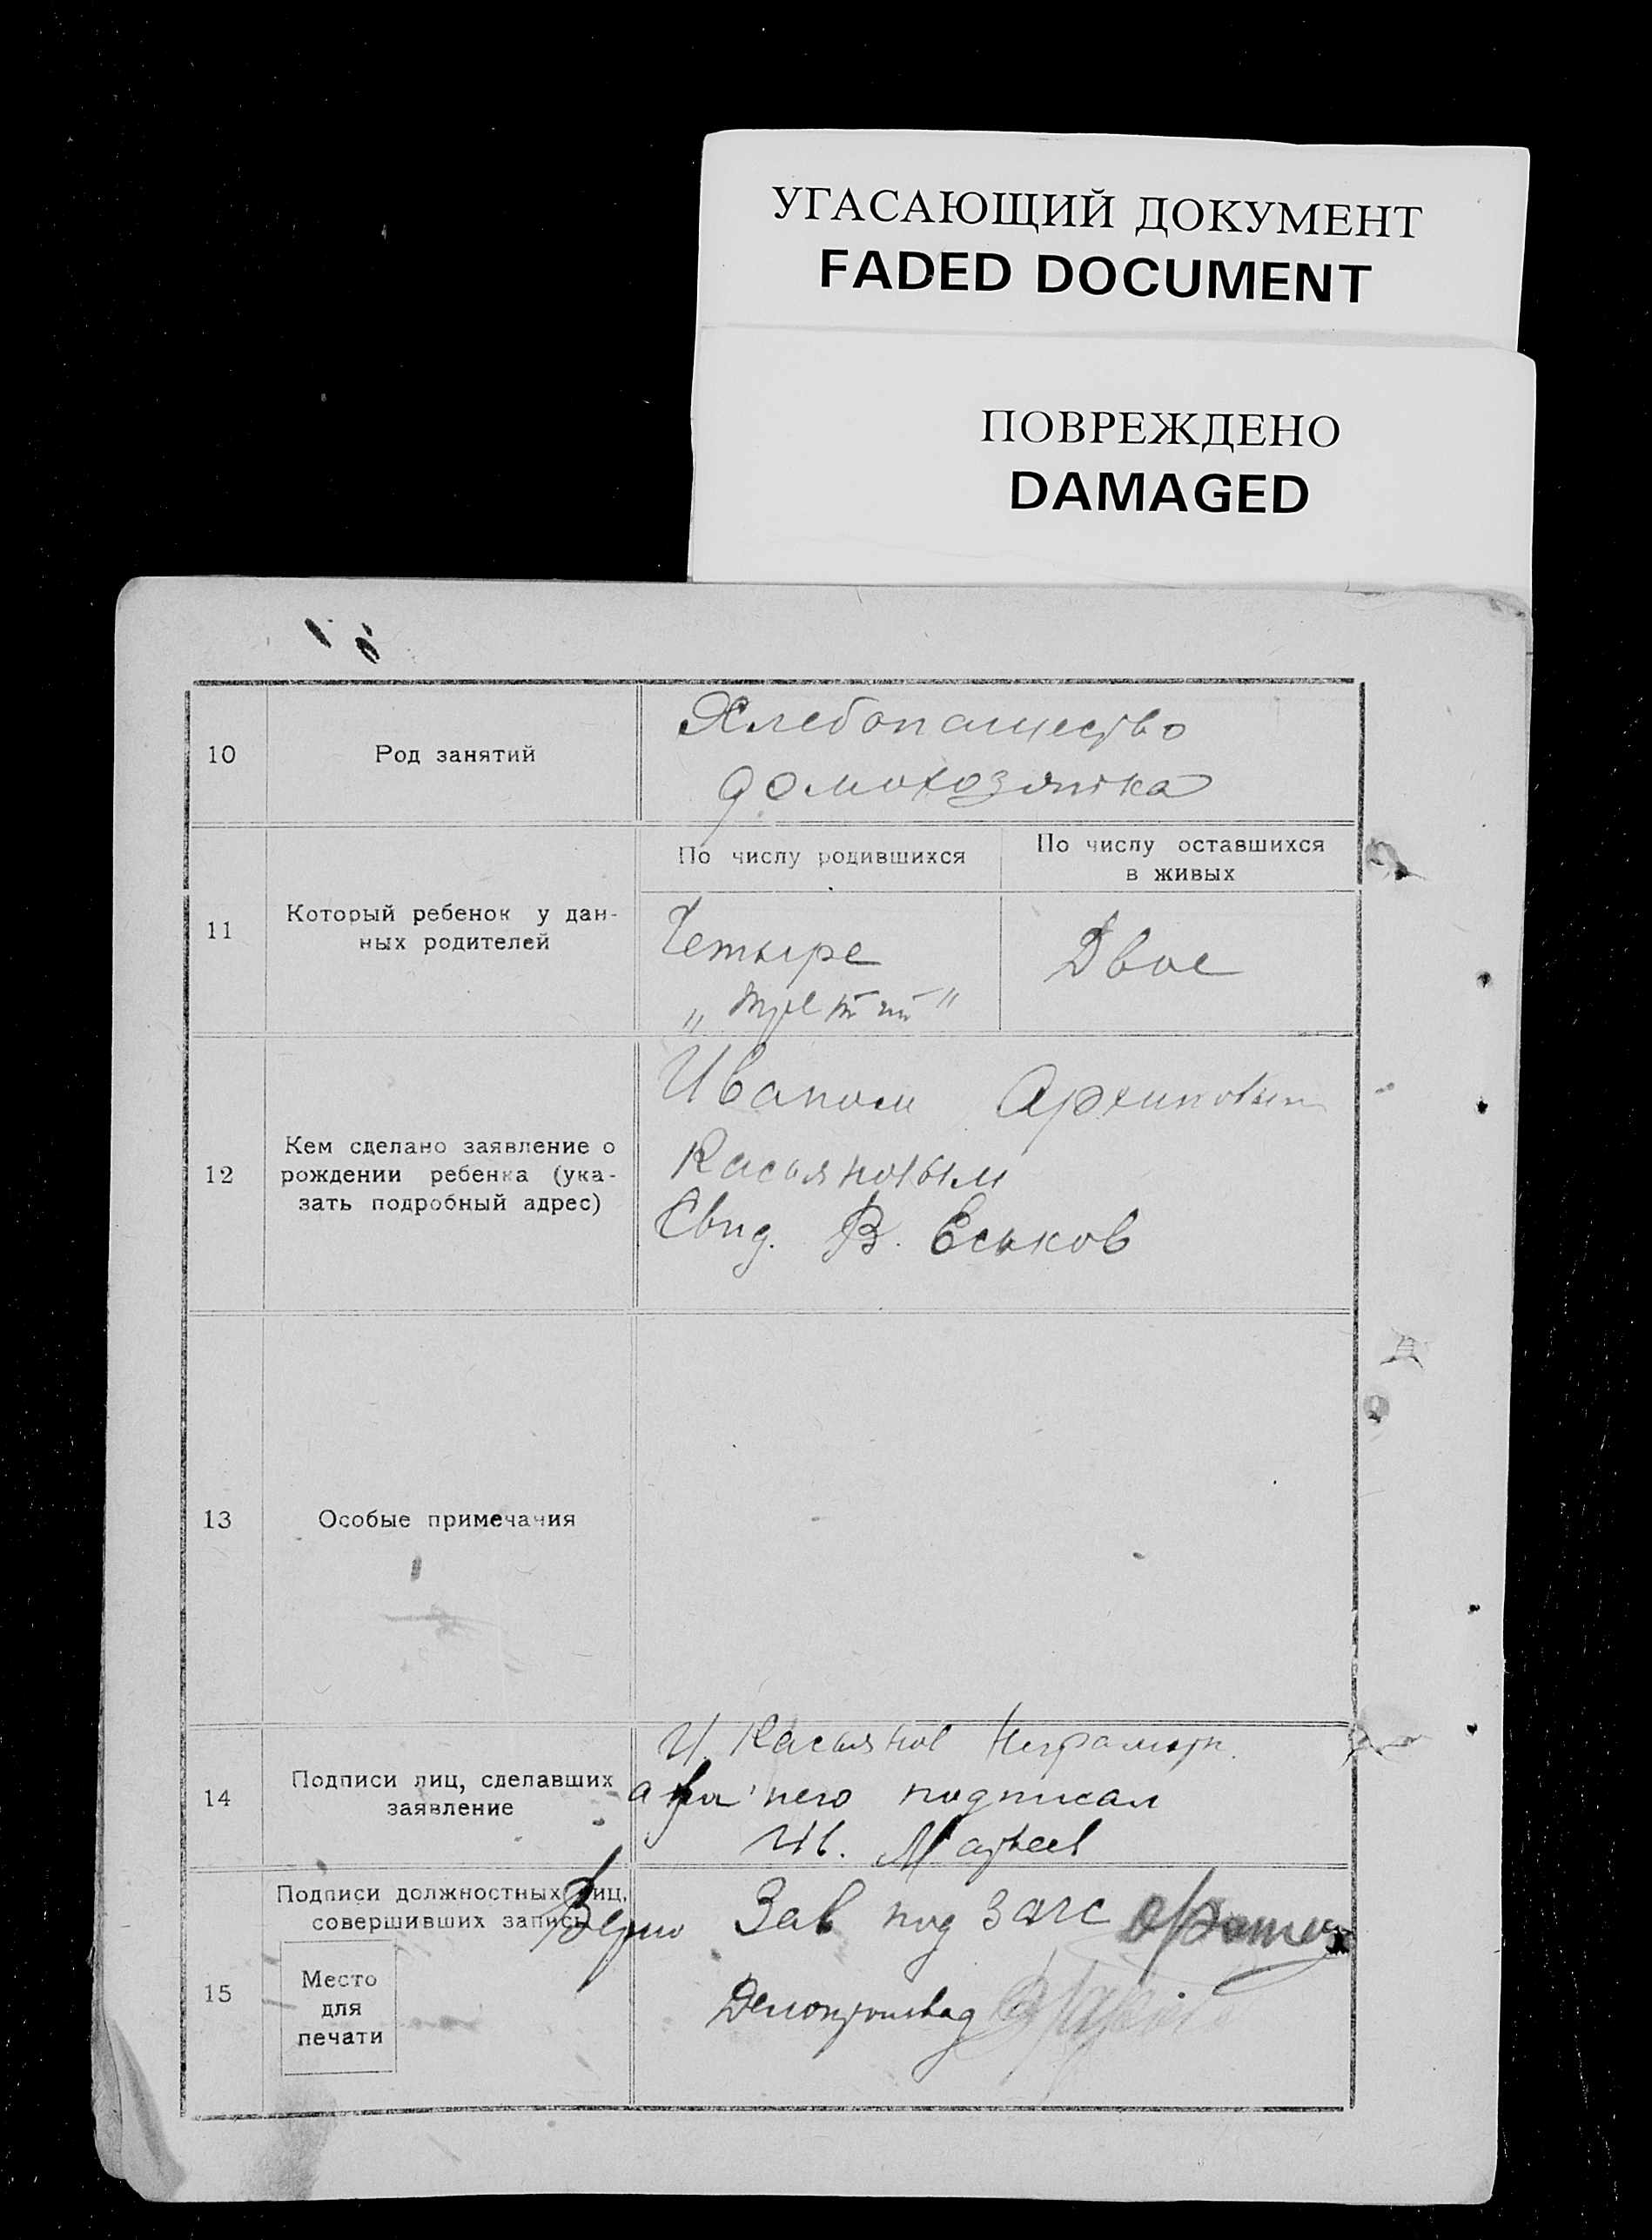 УГАСАЮЩИЙ ДОКУМЕНТ
FADED DOCUMENT
ПОВРЕЖДЕНО
DAMAGED
10
Род занятий
Хлебопашество
домохозяйка
11
Который ребенок у дан-
ных родителей
По числу родившихся
По числу оставшихся
в живых
Четыре
„ третий "
Двое
12
Кем сделано заявление о
рождении ребенка (ука-
зать подробный адрес)
Иваном Архиповым
Касьяновым
Свид. В. Еськов
13
Особые примечания
14
Подписи лиц, сделавших
заявление
И. Касьянов Неграмотн.
а за него подписал
Ив. Матвеев
15
Подписи должностных лиц,
совершивших запись
Место
для
печати
Верно Зав под загс
Делопроизвод